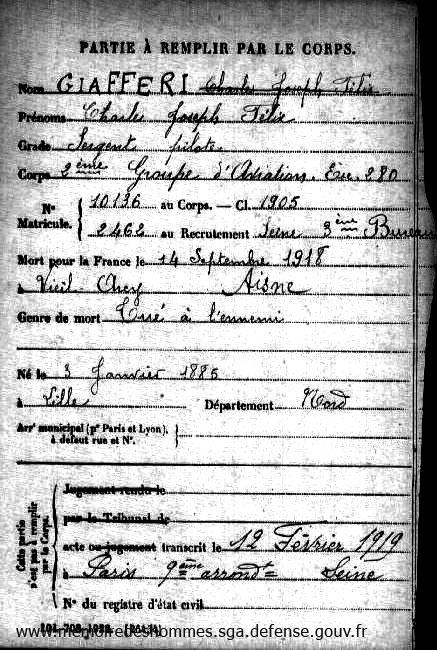 PARTIE À REMPLIR PAR LE CORPS.
Nom GIAFFERI Charles Joseph Félix
Prénoms Charles Joseph Félix
Grade Sergent pilote
Corps 2ème Groupe d'Aviation. Esc. 280
N° Matricule. { 10136 au Corps. — Cl. 1905
2462 au Recrutement Seine 3ème Bureau
Mort pour la France le 14 Septembre 1918
à Vieil-Arcy Aisne
Genre de mort Tué à l'ennemi
Né le 3 Janvier 1885
à Lille Département Nord
Arrt municipal (pr Paris et Lyon), à défaut rue et N°. }
Cette partie n'est pas à remplir par le Corps.
Jugement rendu le
par le Tribunal de
acte ou jugement transcrit le 12 Février 1919
à Paris 9ème arrondt Seine
N° du registre d'état civil
www.memoiredeshommes.sga.defense.gouv.fr